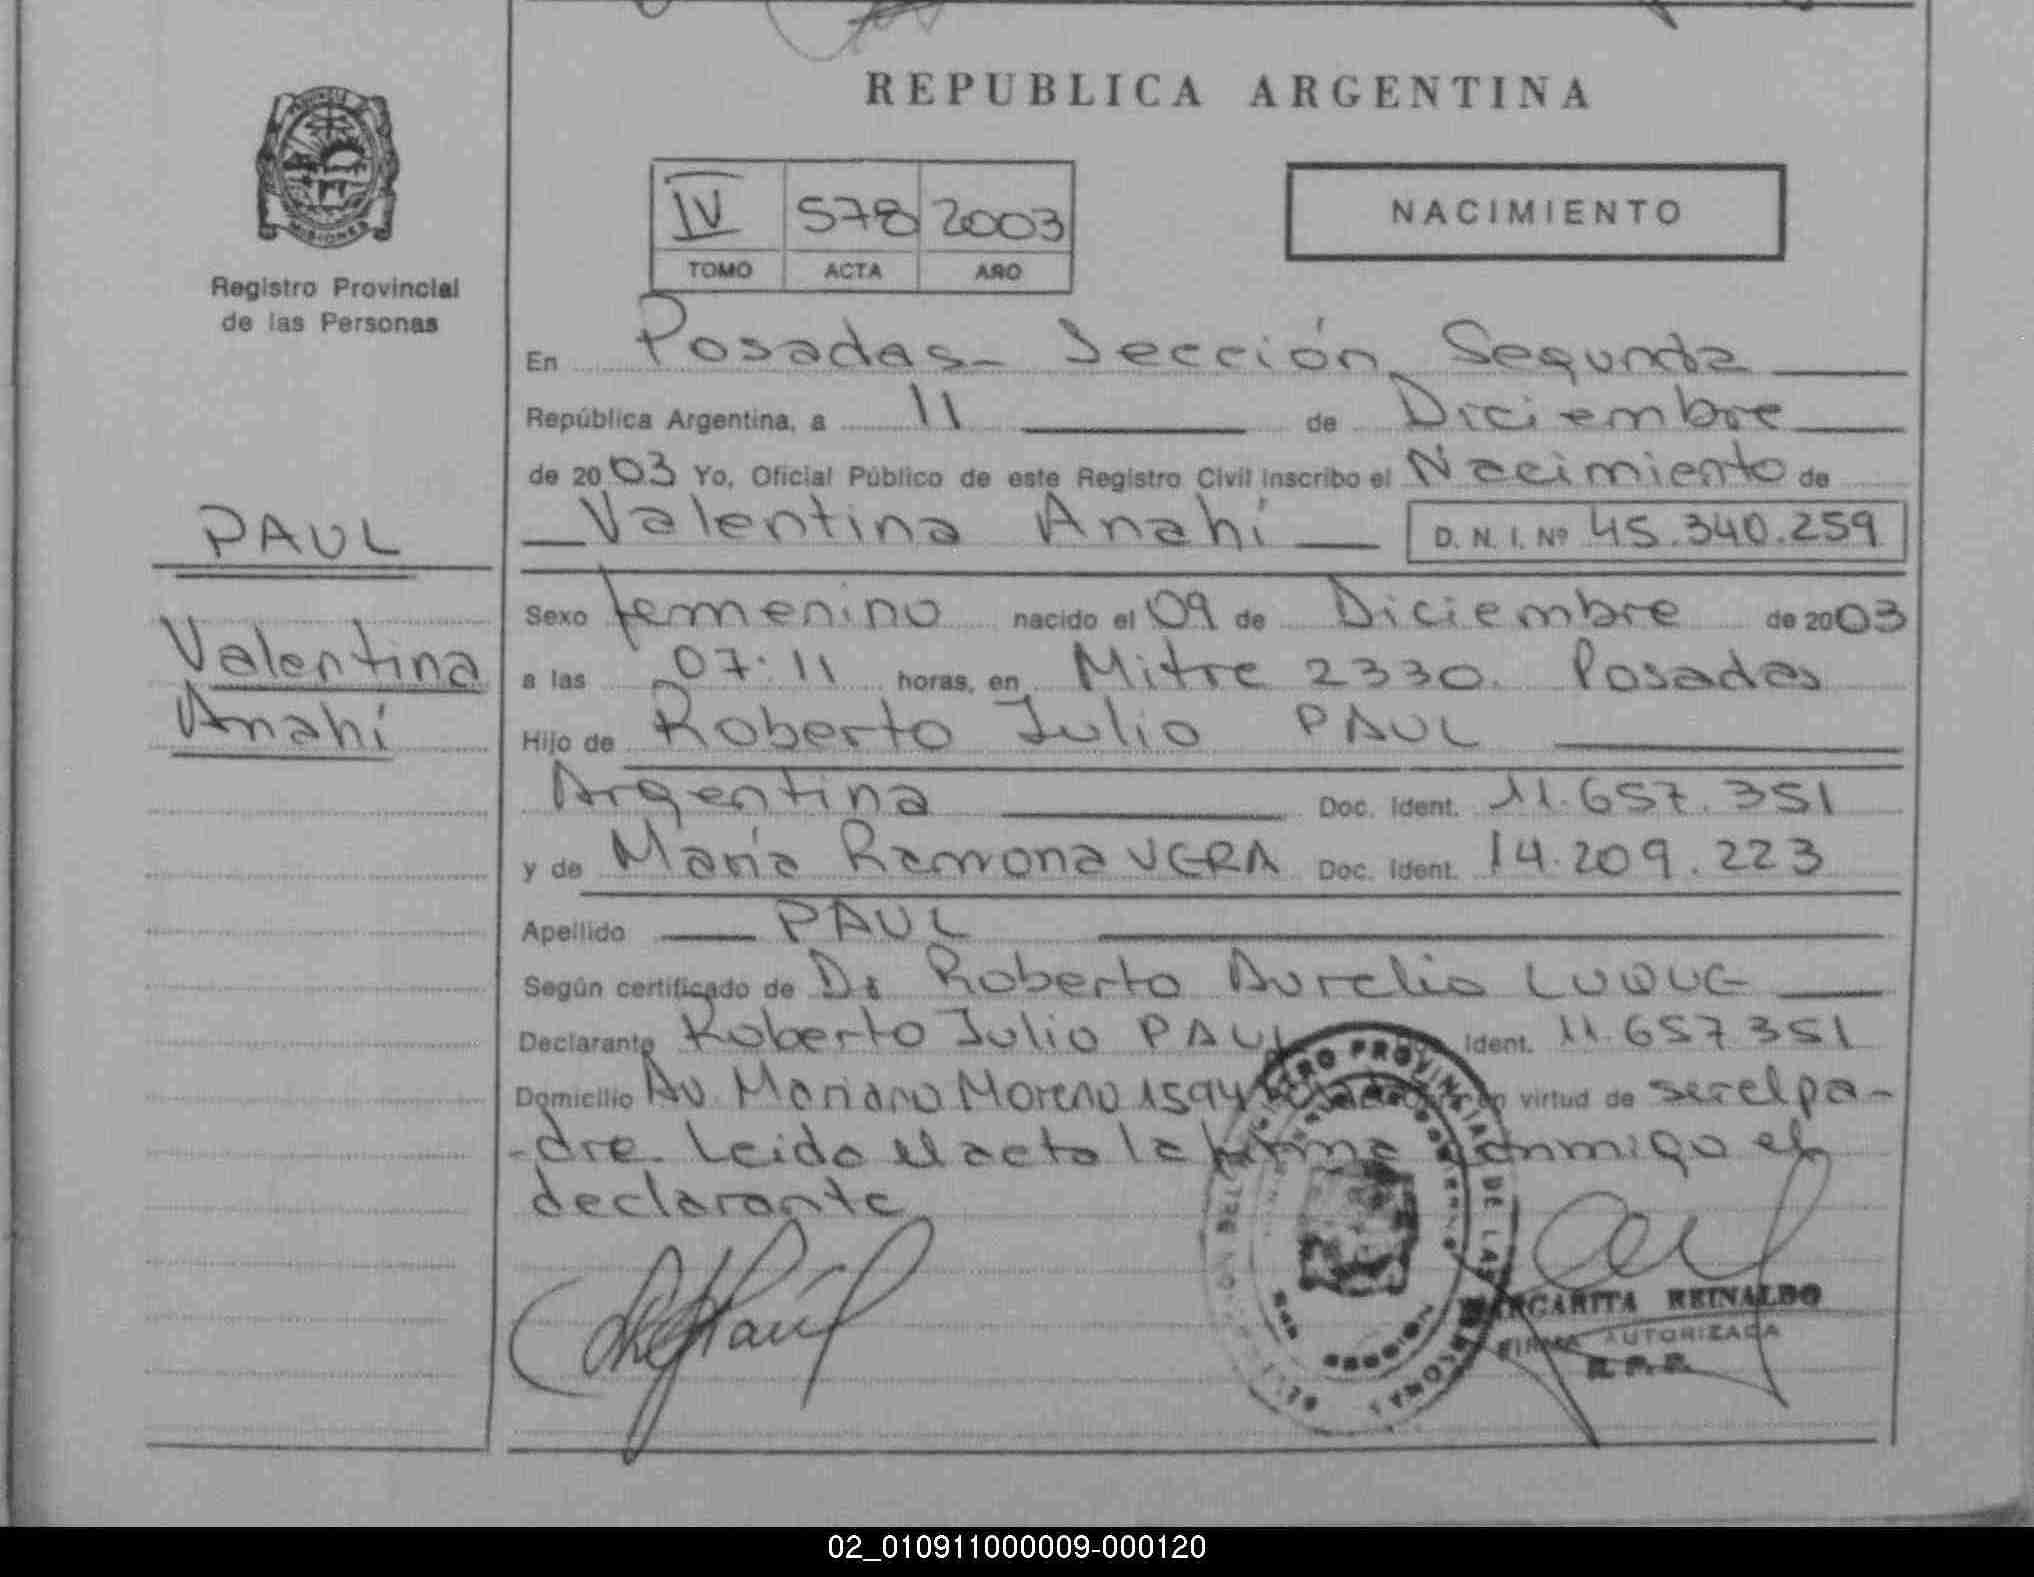 REPUBLICA ARGENTINA
IV 578 2003
TOMO ACTA AÑO
NACIMIENTO
MISIONES
Registro Provincial
de las Personas
PAUL
Valentina
Anahí
En Posadas - Sección Segunda
República Argentina, a 11 de Diciembre
de 2003 Yo, Oficial Público de este Registro Civil inscribo el Nacimiento de
Valentina Anahí D. N. I. Nº 45.340.259
Sexo femenino nacido el 09 de Diciembre de 2003
a las 07:11 horas, en Mitre 2330. Posadas
Hijo de Roberto Julio PAUL
Argentina Doc. Ident. 11.657.351
y de María Ramona VERA Doc. Ident. 14.209.223
Apellido PAUL
Según certificado de Dr Roberto Aurelio LUQUE
Declarante Roberto Julio PAUL Ident. 11.657351
Domicilio Av. Mariano Moreno 1594 en virtud de ser el pa-
-dre. Leida el acta la firma conmigo el
declarante
REGISTRO PROVINCIAL DE LAS PERSONAS
MARGARITA REINALDO
FIRMA AUTORIZADA
R. P. P.
02_010911000009-000120